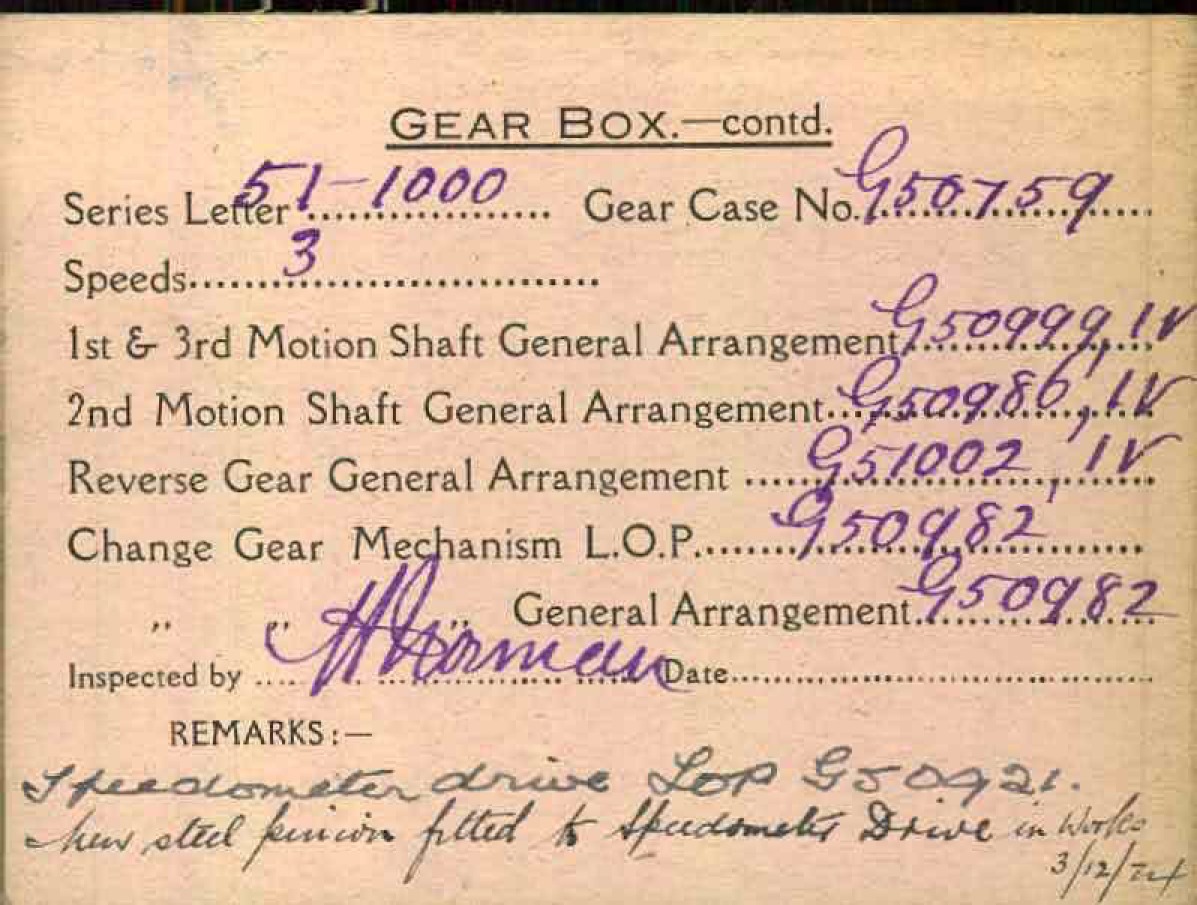 GEAR BOX.—contd.
Series Letter 51-1000 Gear Case No. G50759
Speeds 3
1st & 3rd Motion Shaft General Arrangement G50999, IV
2nd Motion Shaft General Arrangement G50986, IV
Reverse Gear General Arrangement G51002, IV
Change Gear Mechanism L.O.P. G50982
,, ,, ,, General Arrangement G50982
Inspected by H Norman Date
REMARKS:—
Speedometer drive LOP G50921.
New steel pinion fitted to Speedometer Drive in Works
3/12/24